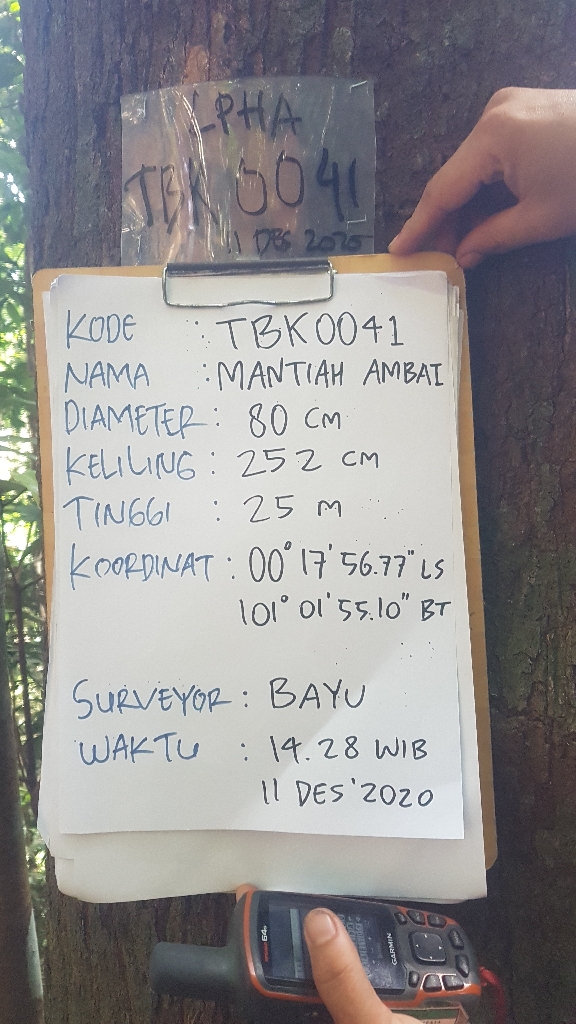 LPHA
TBK 0041
11 DES 2020
KODE : TBK0041
NAMA : MANTIAH AMBAI
DIAMETER : 80 CM
KELILING : 252 CM
TINGGI : 25 M
KOORDINAT : 00° 17' 56.77" LS
101° 01' 55.10" BT
SURVEYOR : BAYU
WAKTU : 14.28 WIB
11 DES'2020
GARMIN
64s